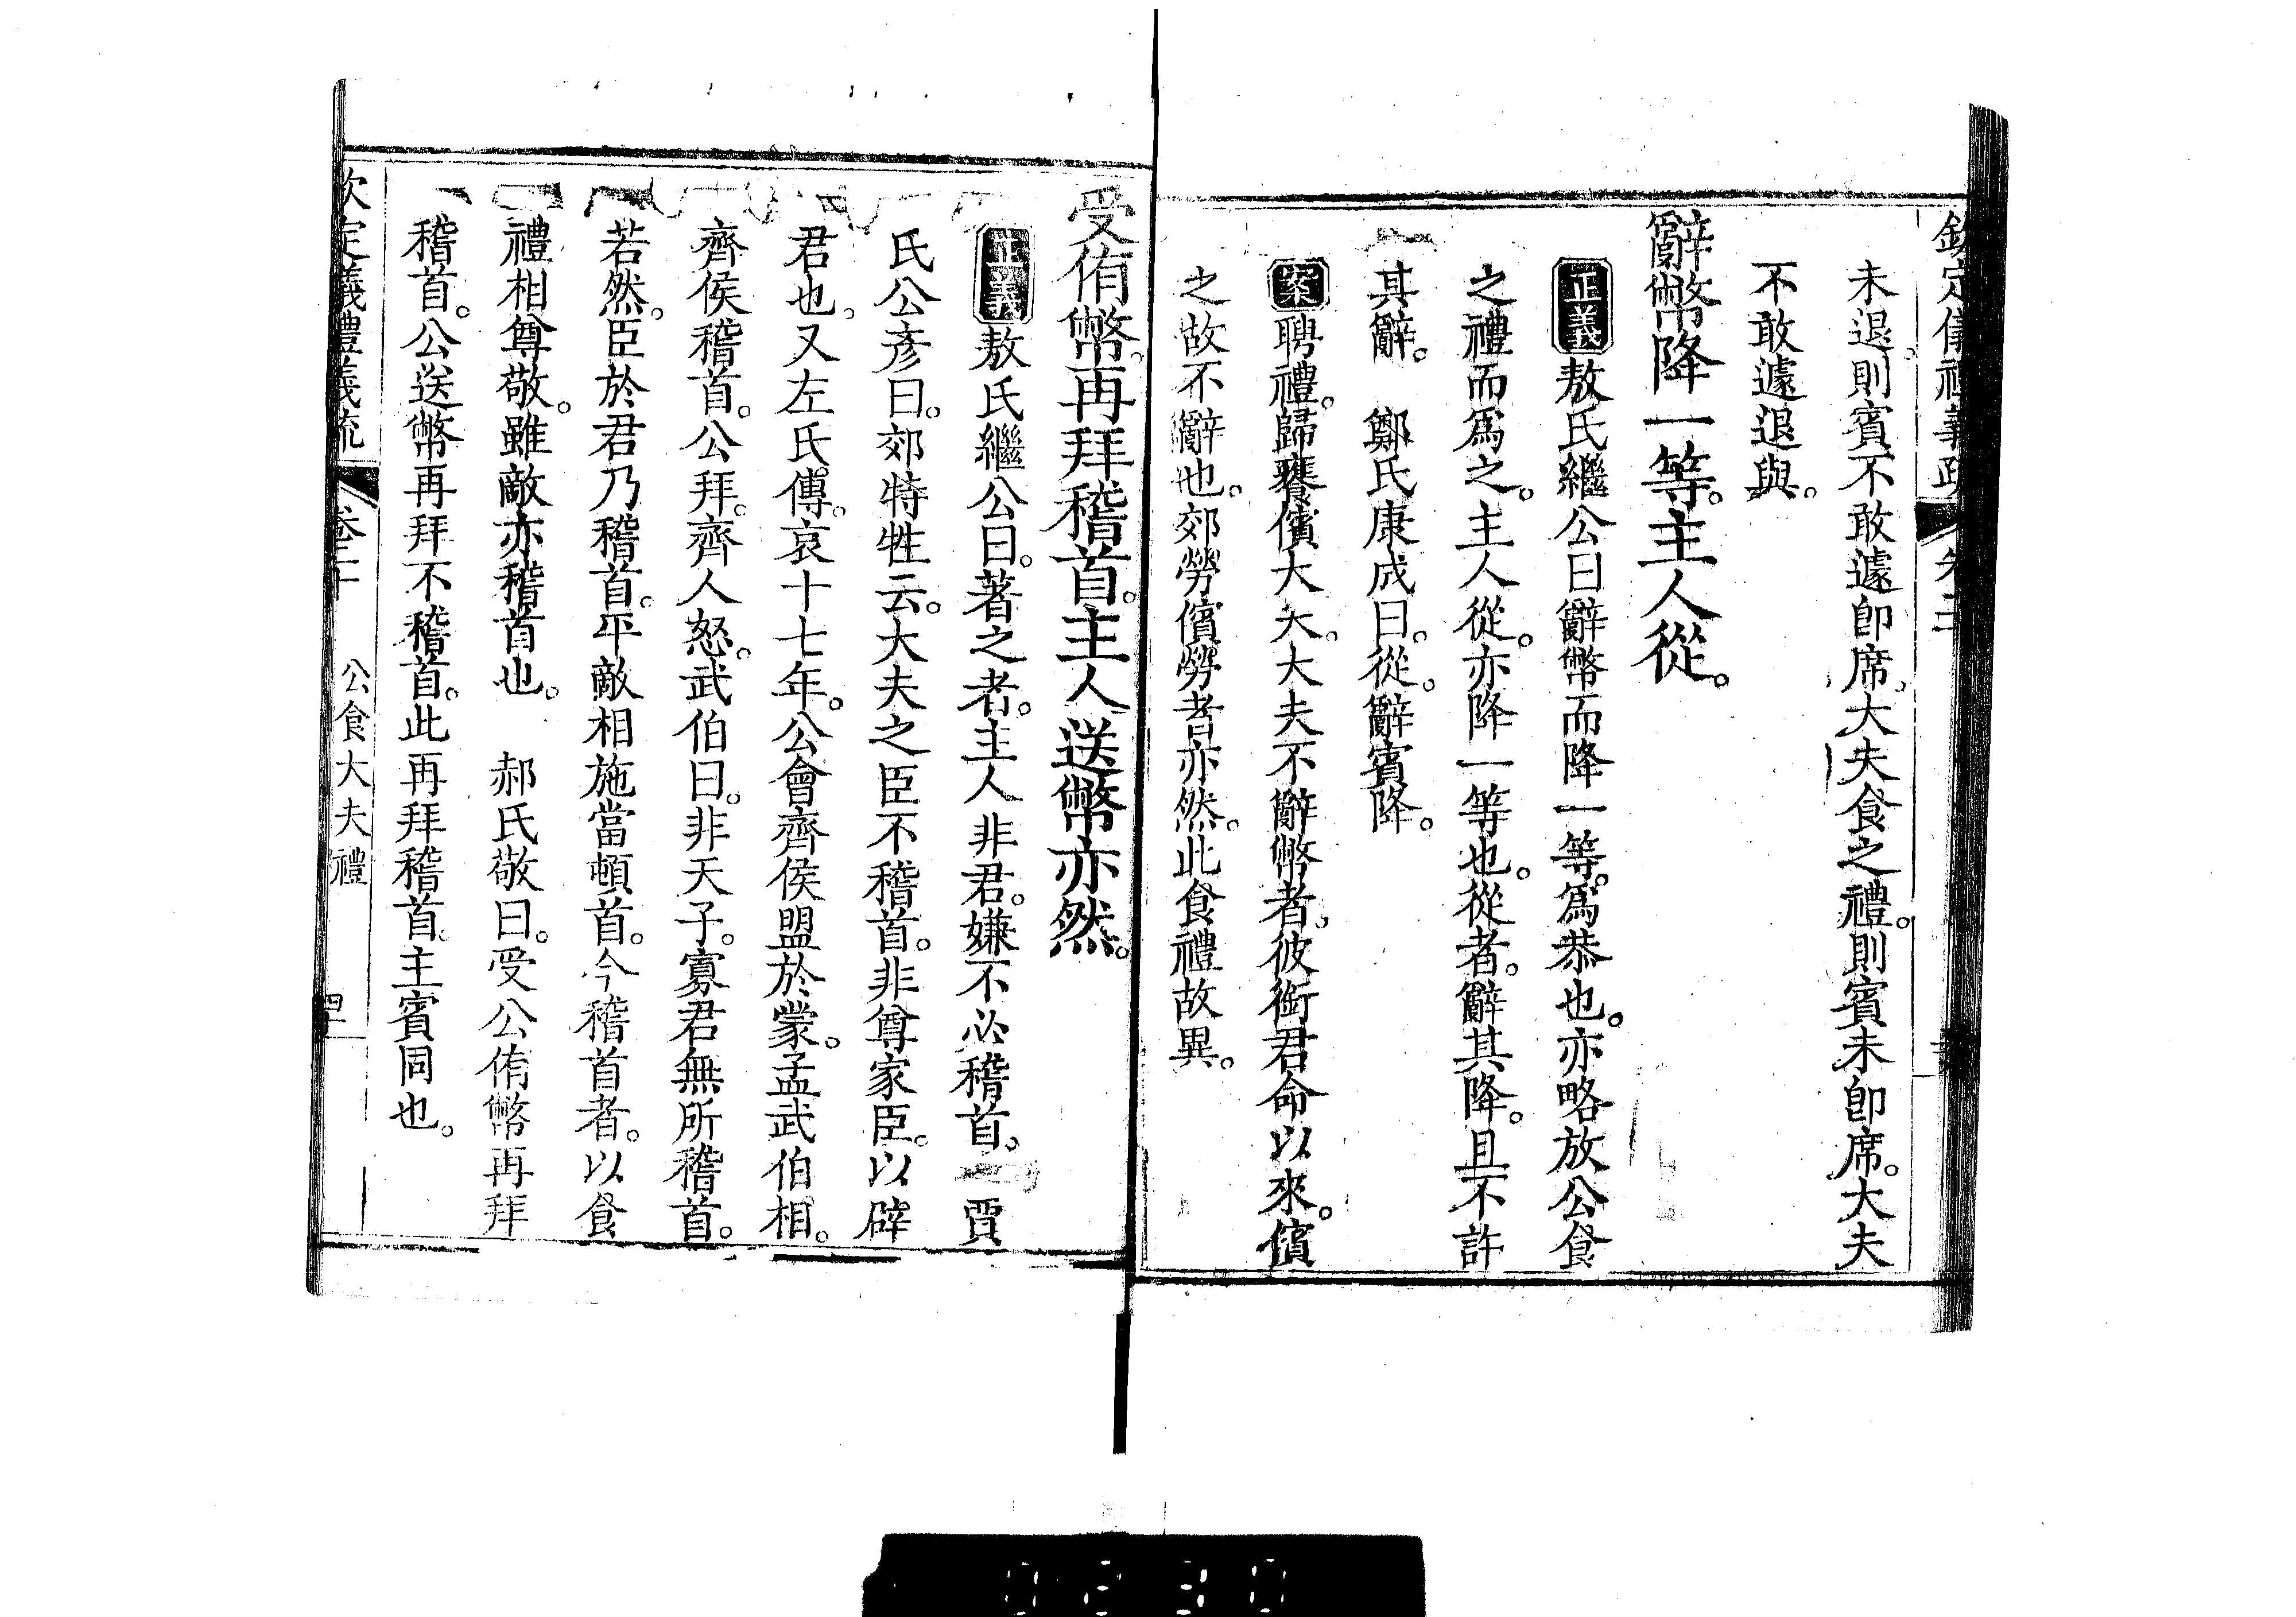 欽定儀禮義疏 卷二
未退。則賓不敢遽卽席。大夫食之禮。則賓未卽席。大夫
不敢遽退與。
辭幣降一等。主人從。
正義敖氏繼公曰辭幣而降一等。爲恭也。亦略放公食
之禮而爲之。主人從。亦降一等也。從者。辭其降。且不許
其辭。 鄭氏康成曰。從。辭賓降。
案聘禮。歸饔儐大夫。大夫不辭幣者。彼銜君命以來。儐
之故不辭也。郊勞儐勞者亦然。此食禮故異。
受侑幣。再拜稽首。主人送幣亦然。
正義敖氏繼公曰。著之者。主人非君。嫌不必稽首。 賈
氏公彥曰。郊特牲云。大夫之臣不稽首。非尊家臣。以辟
君也。又左氏傳。哀十七年。公會齊侯盟於蒙。孟武伯相。
齊侯稽首。公拜。齊人怒。武伯曰。非天子。寡君無所稽首。
若然。臣於君乃稽首。平敵相施當頓首。今稽首者。以食
禮相尊敬。雖敵亦稽首也。 郝氏敬曰。受公侑幣再拜
稽首。公送幣再拜不稽首。此再拜稽首。主賓同也。
欽定義禮義疏 卷二 公食大夫禮
0230